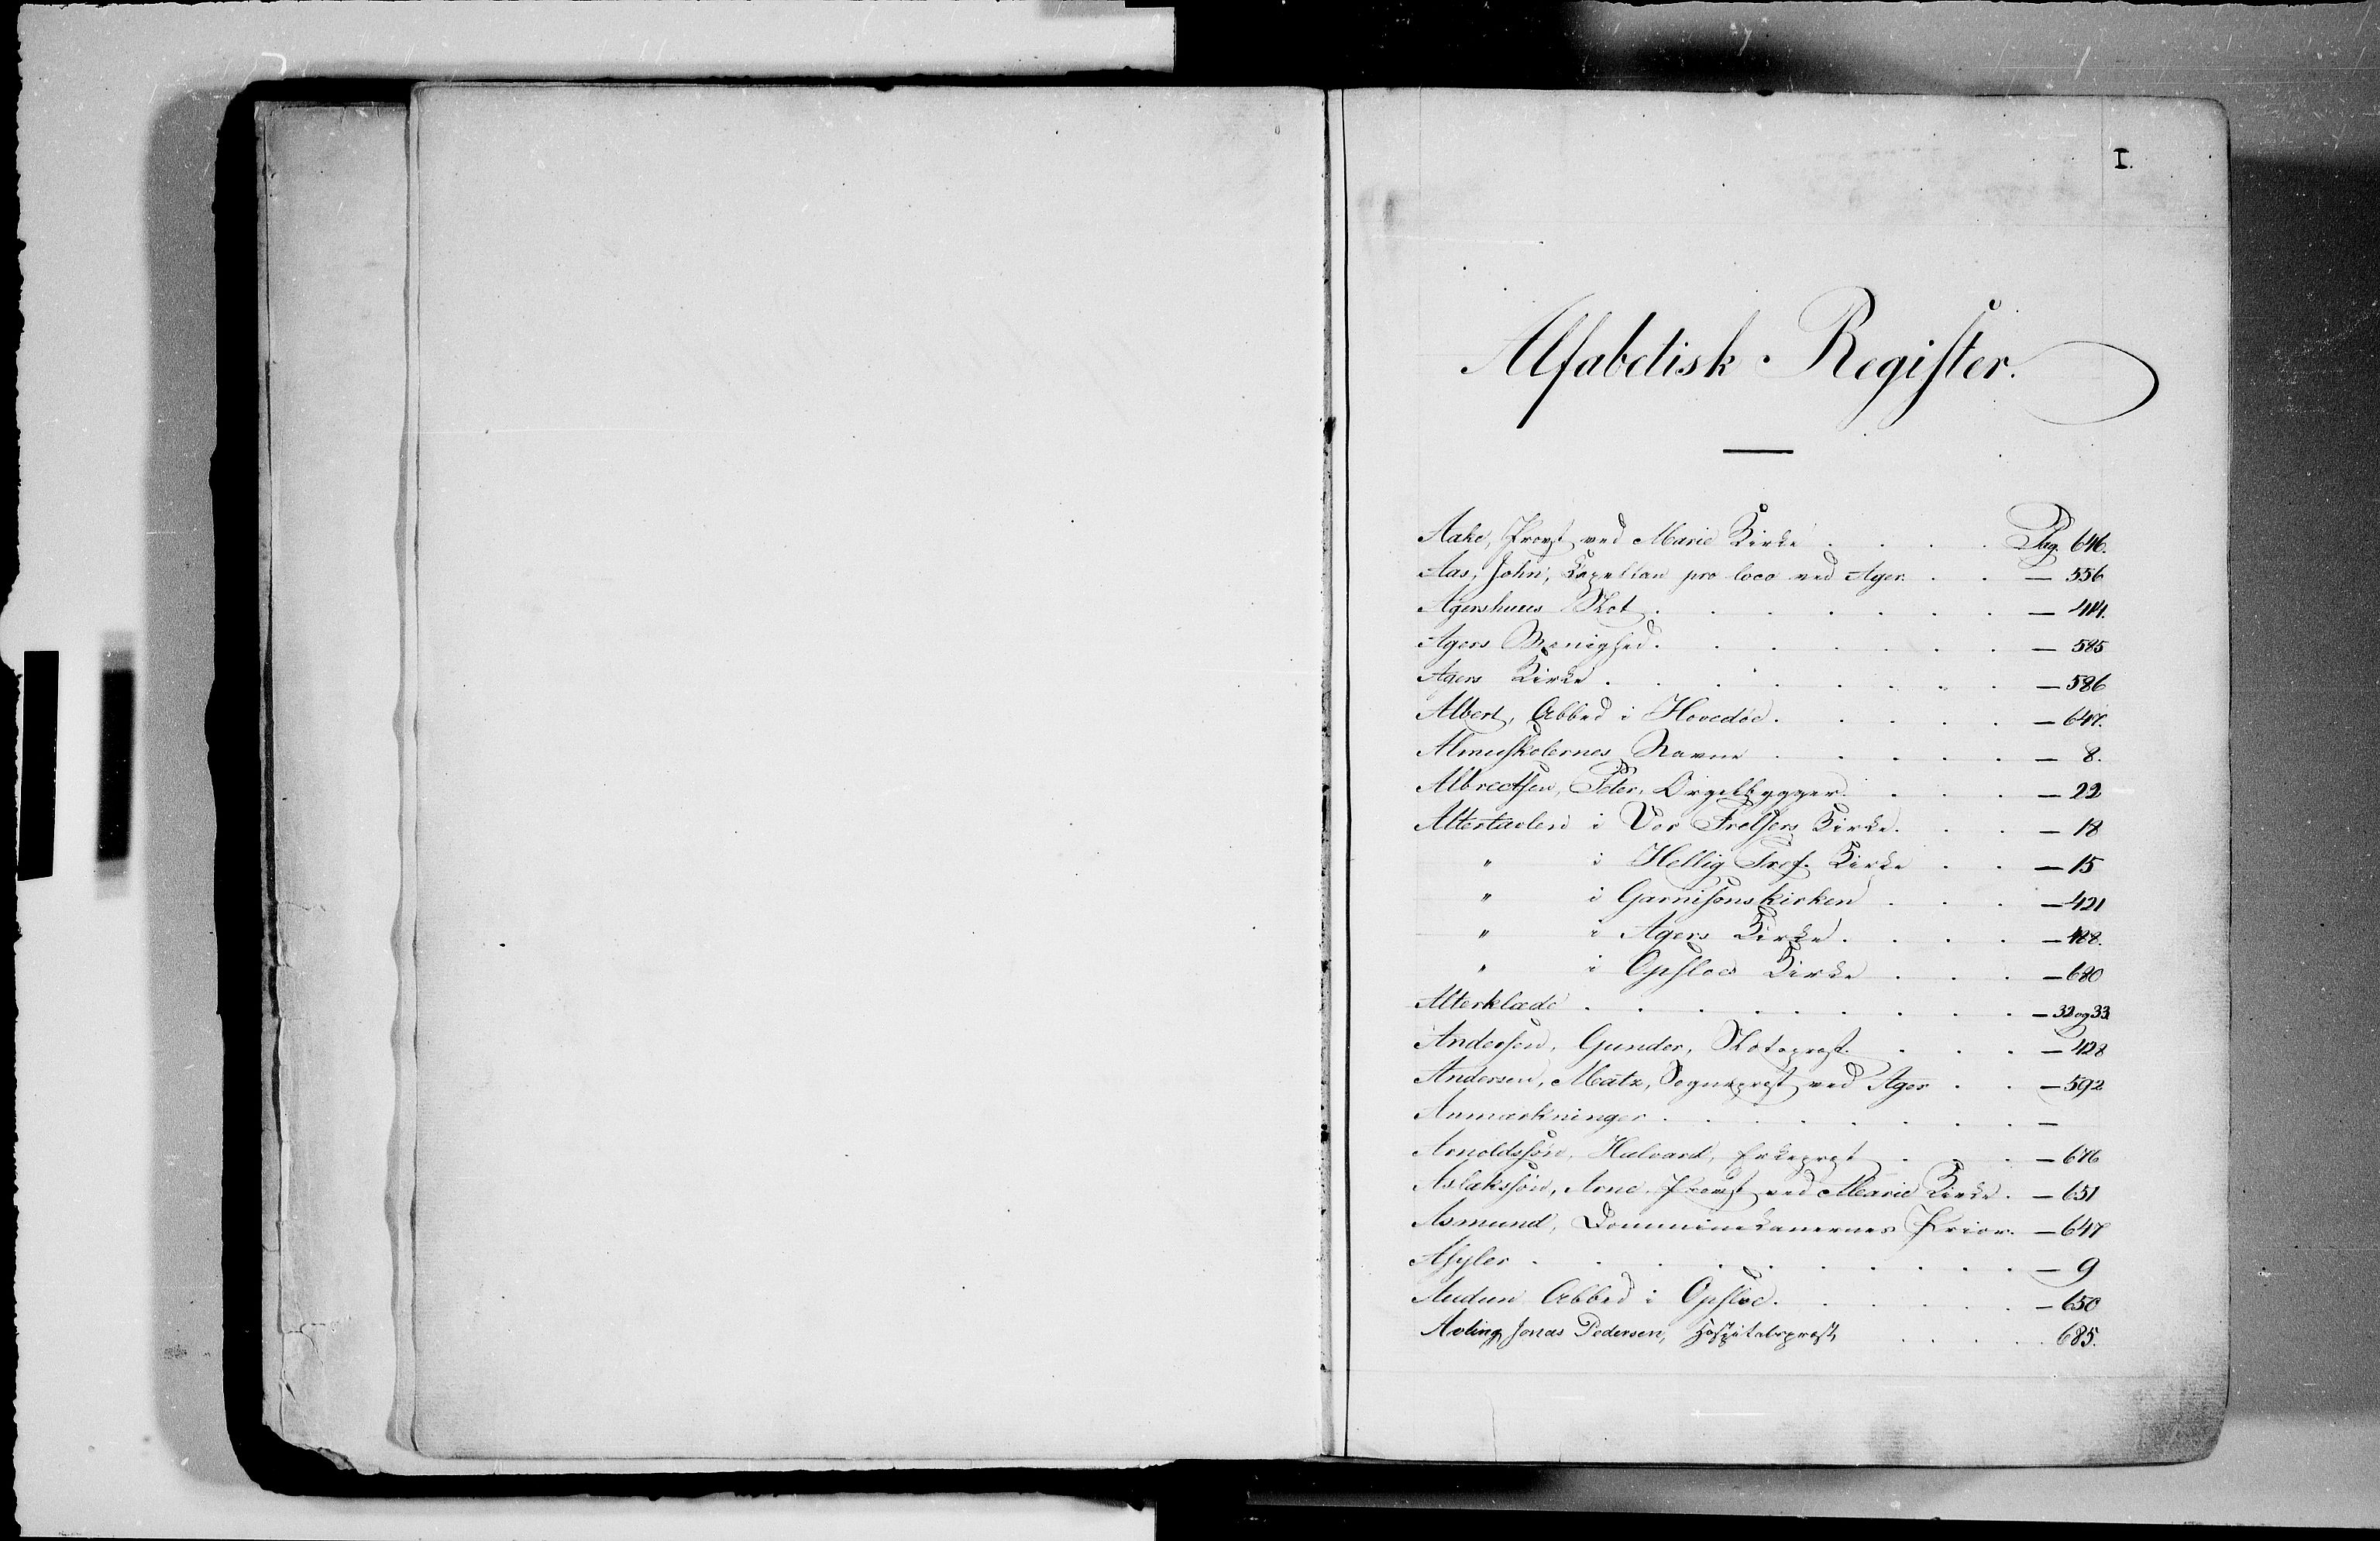 I.
Alfabetisk Register.
Aake, Provst ved Marie Kirke . . . . Pag. 646.
Aas, John, Kapellan pro loco ved Ager . . — 556
Agershuus Slot . . . . . . . — 414.
Agers Menighed . . . . . . . — 585
Agers Kirke . . . . . . . . — 586
Albert, Abbed i Hovedøe . . . . . — 647.
Almueskolernes Navne . . . . . — 8.
Albrectsen, Peter, Orgelbygger . . . — 22
Altertavlen i Vor Frelsers Kirke . . . — 18
" i Hellig Tref. Kirke . . — 15
" i Garnisonskirken . . . — 421
" i Agers Kirke . . . . — 488.
" i Opsloes Kirke . . . — 680
Alterklæde . . . . . . . . — 32 og 33
Andersen, Gunder, Slotsprest . . . — 428
Andersen, Matz, Sogneprest ved Ager . . — 592
Anmærkninger . . . . . . . —
Arnoldssøn, Halvard, Erkeprest . . . — 676
Aslakssøn, Arne, Provst ved Marie Kirke . — 651
Asmund, Domminikanernes Prior . — 647
Asyler . . . . . . . . . — 9
Audun Abbed i Opsloe . . . . . — 650
Avling Jonas Pedersen, Hospitalsprest . . . . 685.